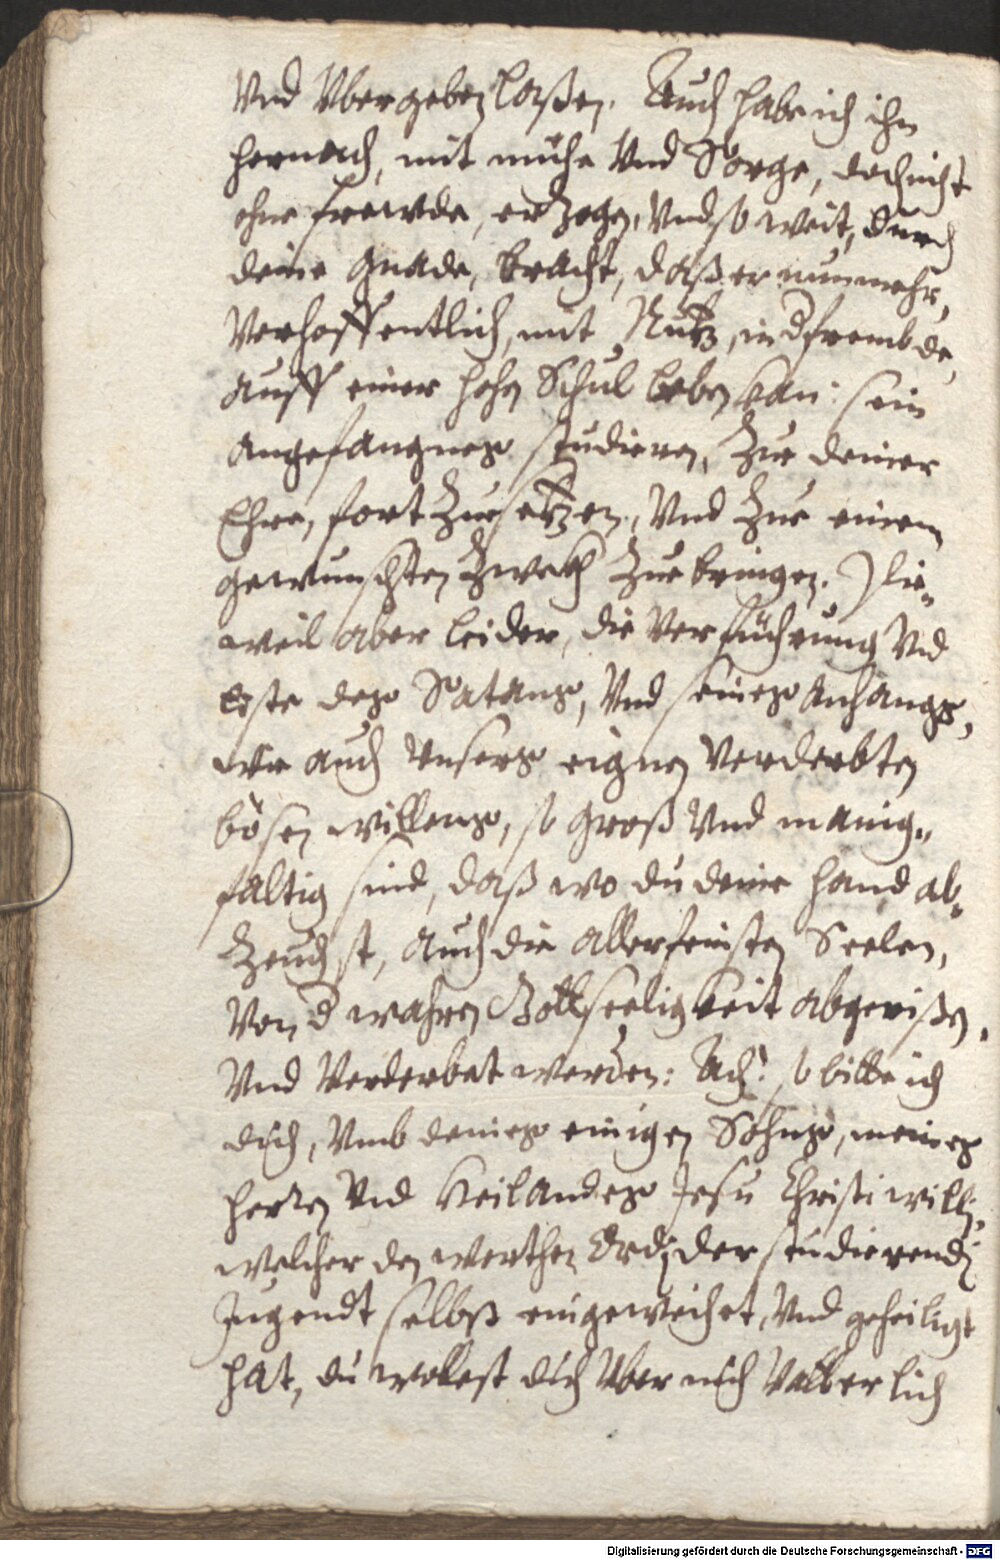 Vnd Vbergeben laßen. Auch habe ich ihn
hernach, mit muhe Vnd Sorge, doch nicht
ohne frewde, erzogen, Vnd so weit, durch
deine gnade, bracht, daß er nunmehr,
Verhoffentlich, mit Nutz, in d frembde,
auff einer hohen Schul leben kan: sein
angefangnes studieren, Zue deiner
Ehre, fort Zue setzen, Vnd Zue einem
gewunschten Zweckh Zue bringen. Die„
weil aber leider, die Verfuhrung Vnd
liste des Satans, Vnd seines anhangs,
wie auch Vnsers eignen Verderbten
bösen willens, so groß Vnd manig„
faltig sind, daß wo du deine hand ab„
Zeuchst, auch die allerfeinsten Seelen,
Von d wahren Gottseeligkeit abgerißen,
Vnd Verderbet werden: Ach! so bitte ich
dich, Vmb deines einigen Sohns, meines
herren Vnd Heilandes Jesu Christi willen,
welcher den werthen Orden der studierenden
Jugendt selbst eingeweihet, Vnd geheiligt
hat, du wollest dich Vber mich Vätterlich
Digitalisierung gefördert durch die Deutsche Forschungsgemeinschaft - DFG